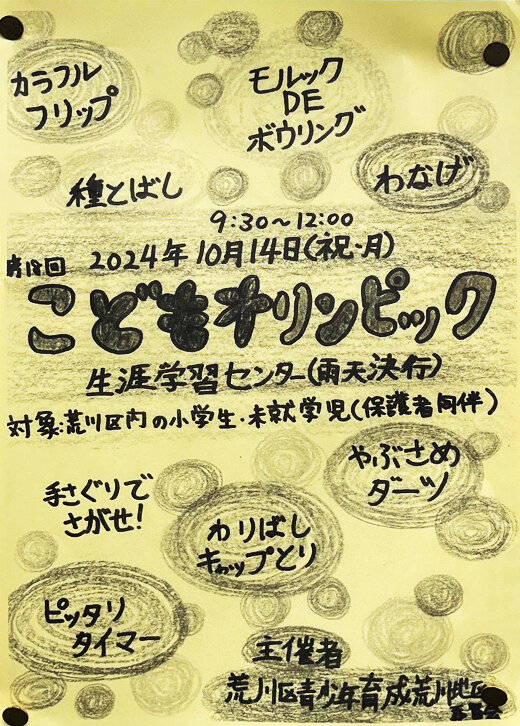 カラフル
フリップ
モルック
DE
ボウリング
種とばし
わなげ
9:30～12:00
第18回 2024年10月14日(祝・月)
こどもオリンピック
生涯学習センター(雨天決行)
対象:荒川区内の小学生・未就学児(保護者同伴)
やぶさめ
ダーツ
手さぐりで
さがせ!
わりばし
キャップとり
ピッタリ
タイマー
主催者
荒川区青少年育成荒川地区
委員会